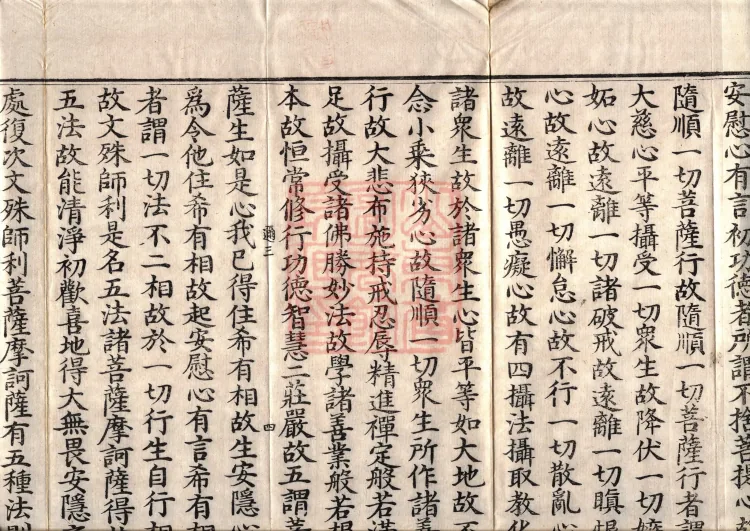 安慰心有言初功德者所謂不捨菩提心
隨順一切菩薩行故隨順一切菩薩行者謂
大慈心平等攝受一切衆生故降伏一切
妬心故遠離一切諸破戒故遠離一切瞋
心故遠離一切懈怠心故不行一切散亂心
故遠離一切愚癡心故有四攝法攝取教化
諸衆生故於諸衆生心皆平等如大地故
念小乗狹劣心故隨順一切衆生所作諸
行故大悲布施持戒忍辱精進禪定般若滿
足故攝受諸佛勝妙法故學諸善業般若
本故恒常修行功徳智慧二莊嚴故五謂
薩生如是心我已得住希有相故生安隱心
爲令他住希有相故起安慰心有言希有相
者謂一切法不二相故於一切行生自行相
故文殊師利是名五法諸菩薩摩訶薩得
五法故能清淨初歡喜地得大無畏安隱
處復次文殊師利菩薩摩訶薩有五種法則
通三
四